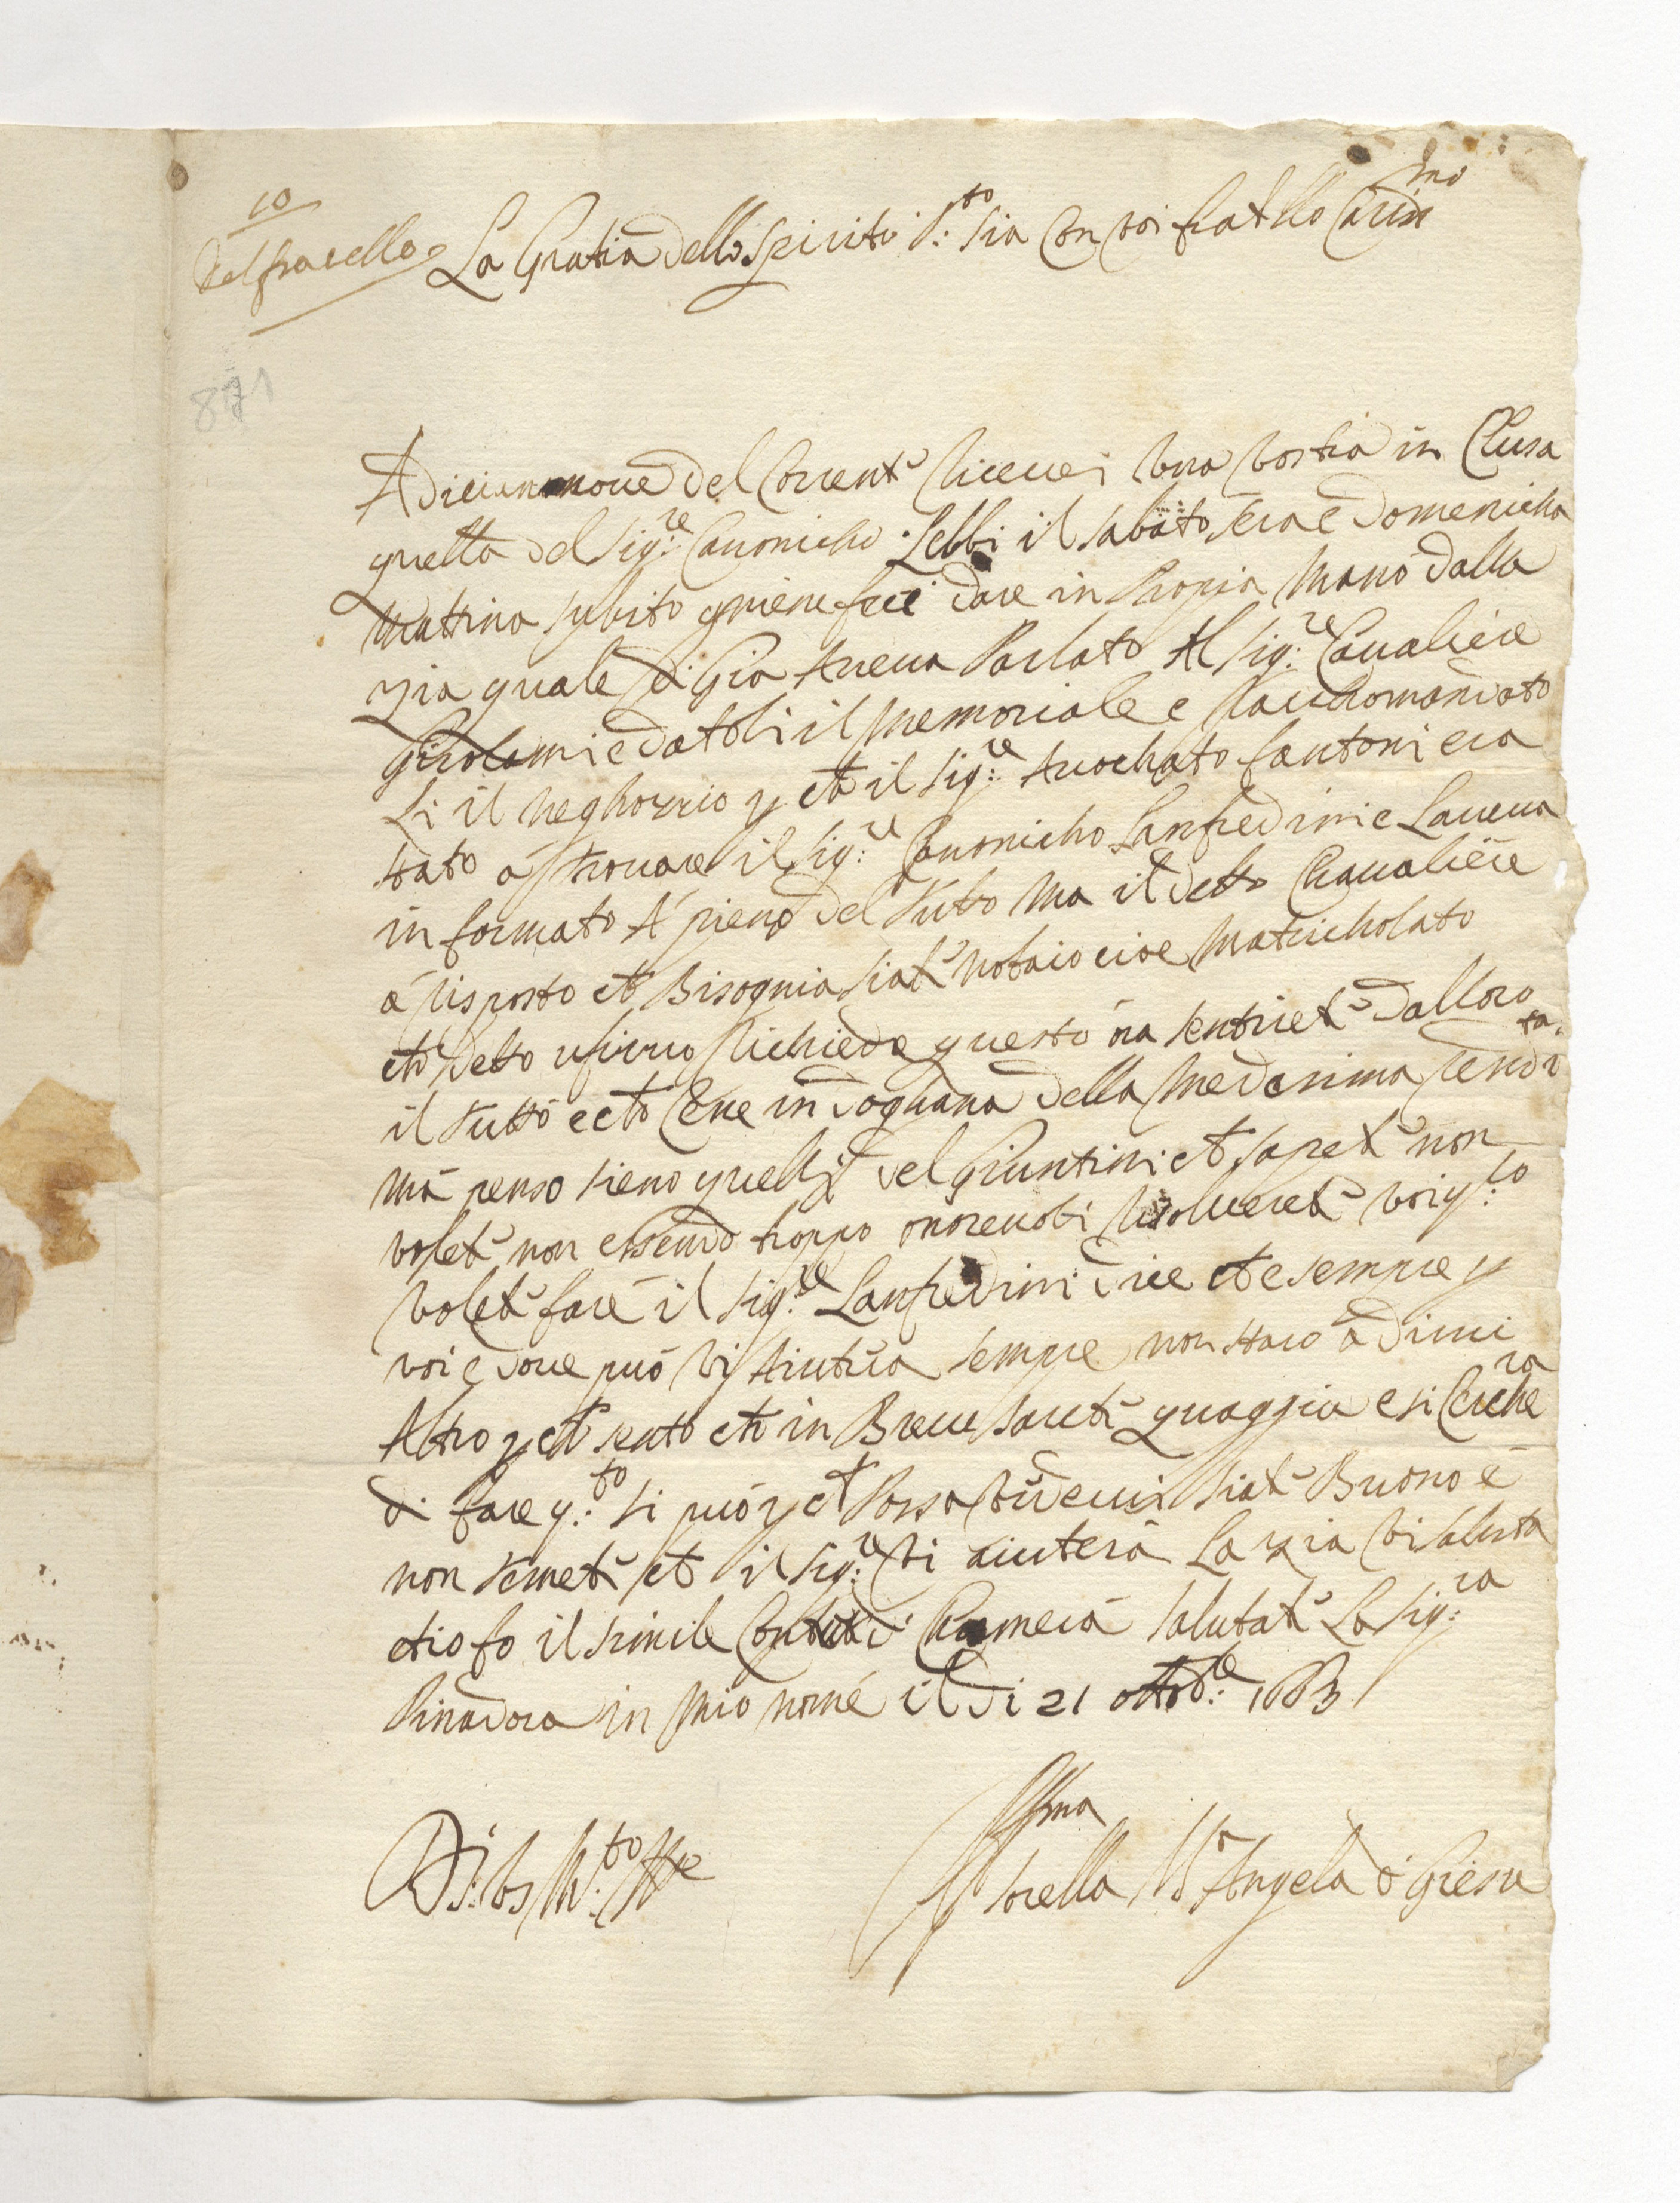 10
del fratello
La Gratia dello Spirito S.to sia Con voi fratello Carismo
871
A dicianove del Corrente riceuei una vostra in Clusa
quella del Sig.re Canonicho Lebbi il sabato sera e domenicha
mattina subito gniene feci dare in Propia mano dalla
zia quale di Gia Aueua Parlato Al Sig.re Caualiere
Girolami e datoli il memoriale e racchomandato
Li il neghozzio p che il Sig.re Auochato fantoni era
stato a trouare il Sig.re Canonicho Lanfredini e Laueua
in formato A pieno del tutto ma il detto Chaualiere
a risposto che Bisognia siate notaio cioe matricholato
che detto ufizzio richiede questo ora sentirete dalloro
il tutto e che Cene in doghana della medesima rendita
ma penso sieno quelli del Giuntini che sapete non
volete non essendo troppo onoreuoli risoluerete voi q.lo
volete fare il Sig.re Lanfredini dice che e sempre p
voi e doue può vi Aiutera sempre non staro a dirui
Altro p che sento che in Breue sarete quaggiu e si Cerchera
di fare q.to si può p che Possa uederui siate Buono e
non temete che il Sig.re vi aiuterà La zia vi saluta
et io fo il simile Con tutte di Chamera salutate La Sig.ra
in mio nome il di 21 ottob.re 1683
Di Vs M.to Ill.re
Affma
Sorella Sr Angela di Giesu